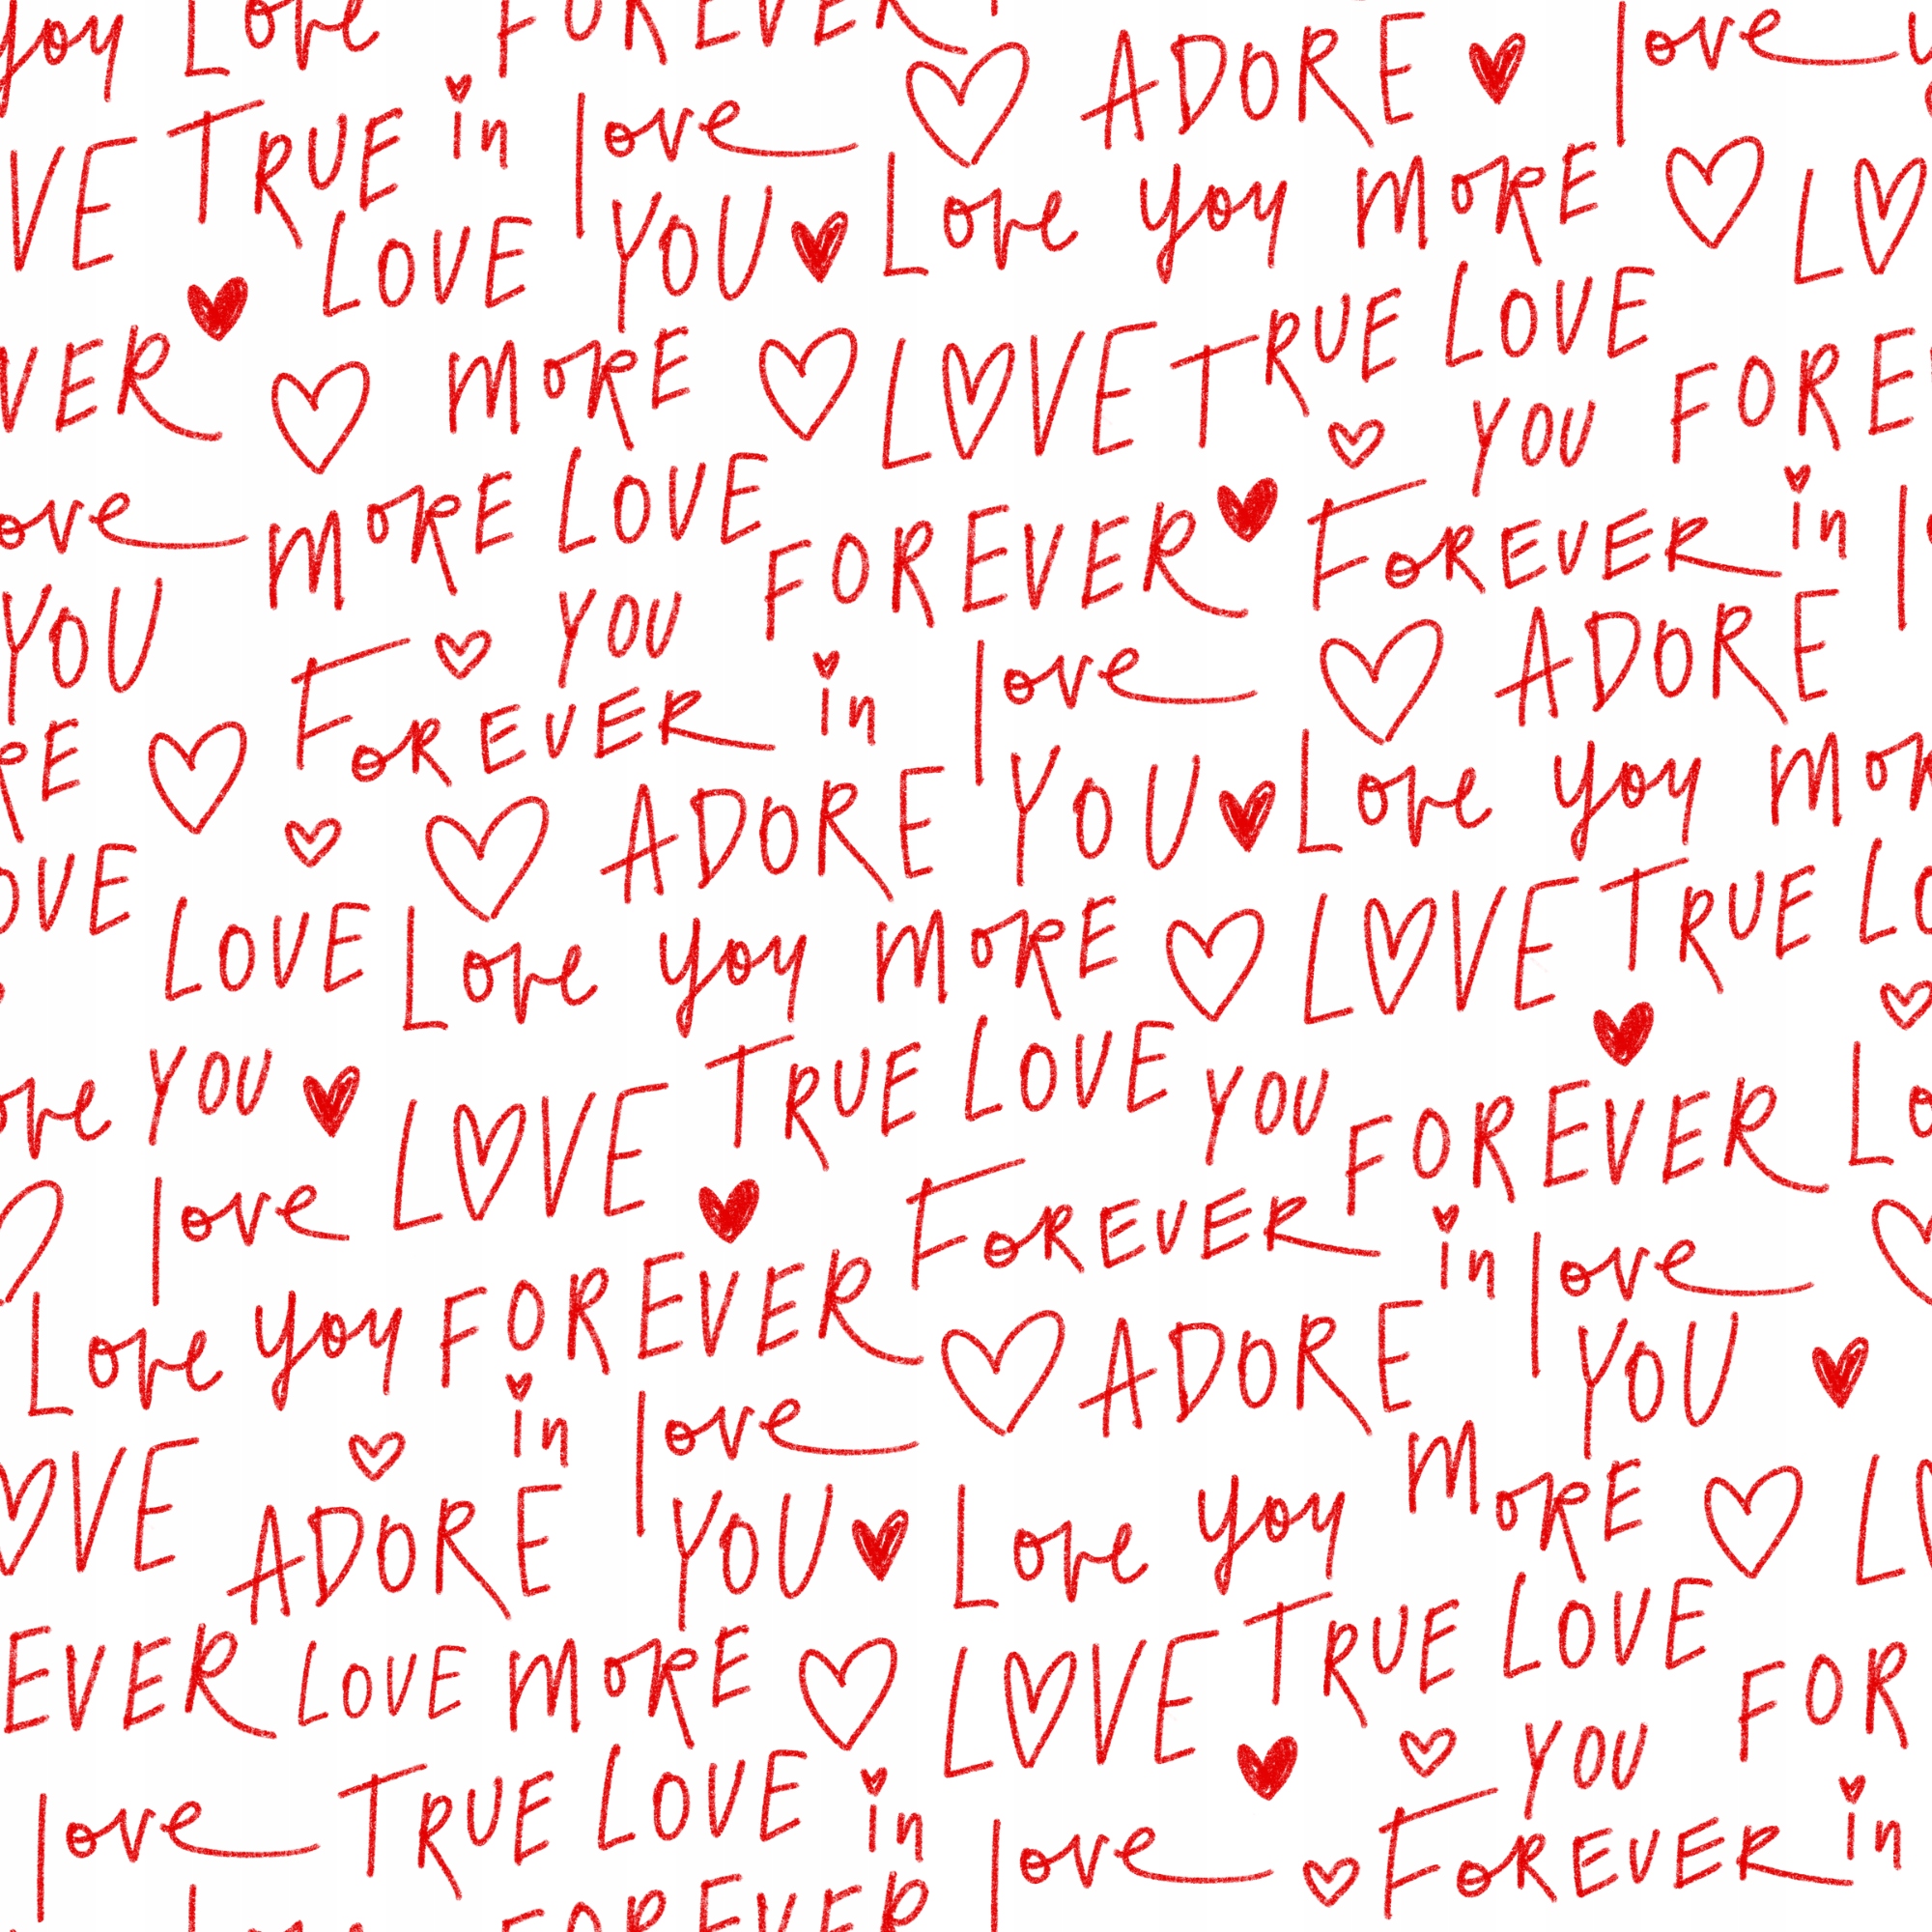 you Love FOREVER
ADORE love
VE TRUE in love
LOVE YOU Love you MORE LO
VER MORE LOVE TRUE LOVE
YOU FORE
ove MORE LOVE FOREVER FOREVER in
YOU YOU in love ADORE
RE FOREVER
ADORE YOU Love you MOR
OVE LOVE Love you MORE LOVE TRUE LO
ove YOU LOVE TRUE LOVE YOU FOREVER Lo
love FOREVER in love
Love you FOREVER ADORE YOU
in love
OVE ADORE YOU Love you MORE LO
EVER LOVE MORE LOVE TRUE LOVE FOR
YOU
love TRUE LOVE in love FOREVER in
FOREVER